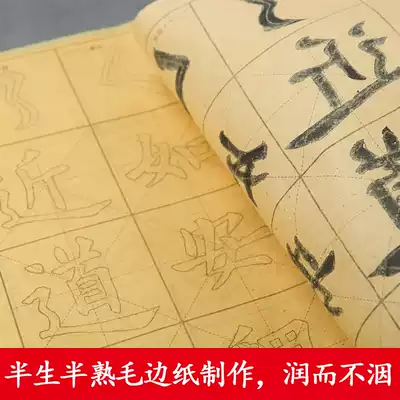 近 如
道 安
半生半熟毛边纸制作，润而不洇